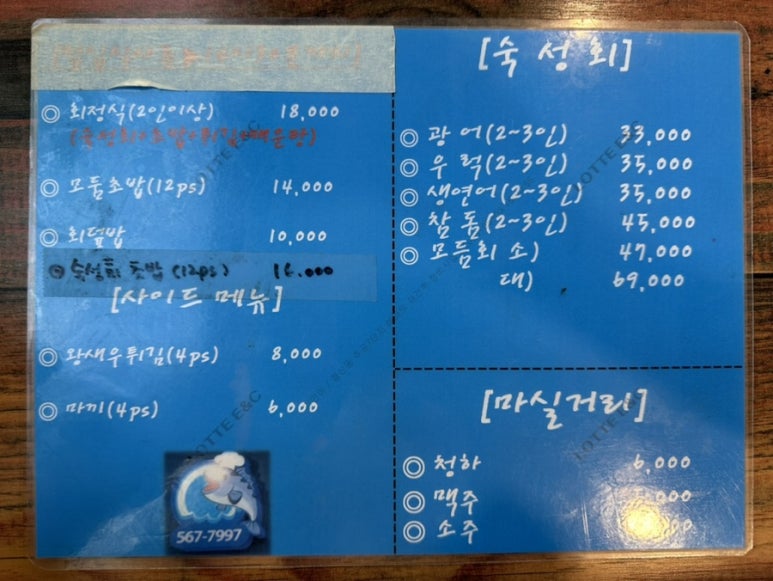 ◎ 회정식(2인이상) 18,000
◎ 모둠초밥(12ps) 14,000
◎ 회덮밥 10,000
◎ 숙성회 초밥 (12ps) 16.000
[사이드 메뉴]
◎ 왕새우튀김(4ps) 8,000
◎ 마끼(4ps) 6,000
567-7997
[숙성회]
◎ 광어(2~3인) 33,000
◎ 우럭(2~3인) 35,000
◎ 생연어(2~3인) 35,000
◎ 참돔(2~3인) 45,000
◎ 모듬회 소) 47,000
대) 69,000
[마실거리]
◎ 청하 6,000
◎ 맥주
◎ 소주
LOTTE E&C
LOTTE E&C
LOTTE E&C